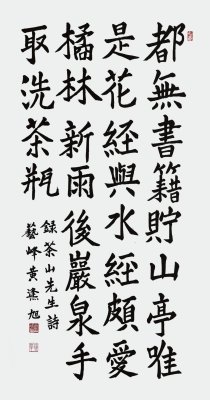 都無書籍貯山亭唯
是花經與水經頗愛
橘林新雨後巖泉手
取洗茶瓶
錄茶山先生詩
藝峰黃旭